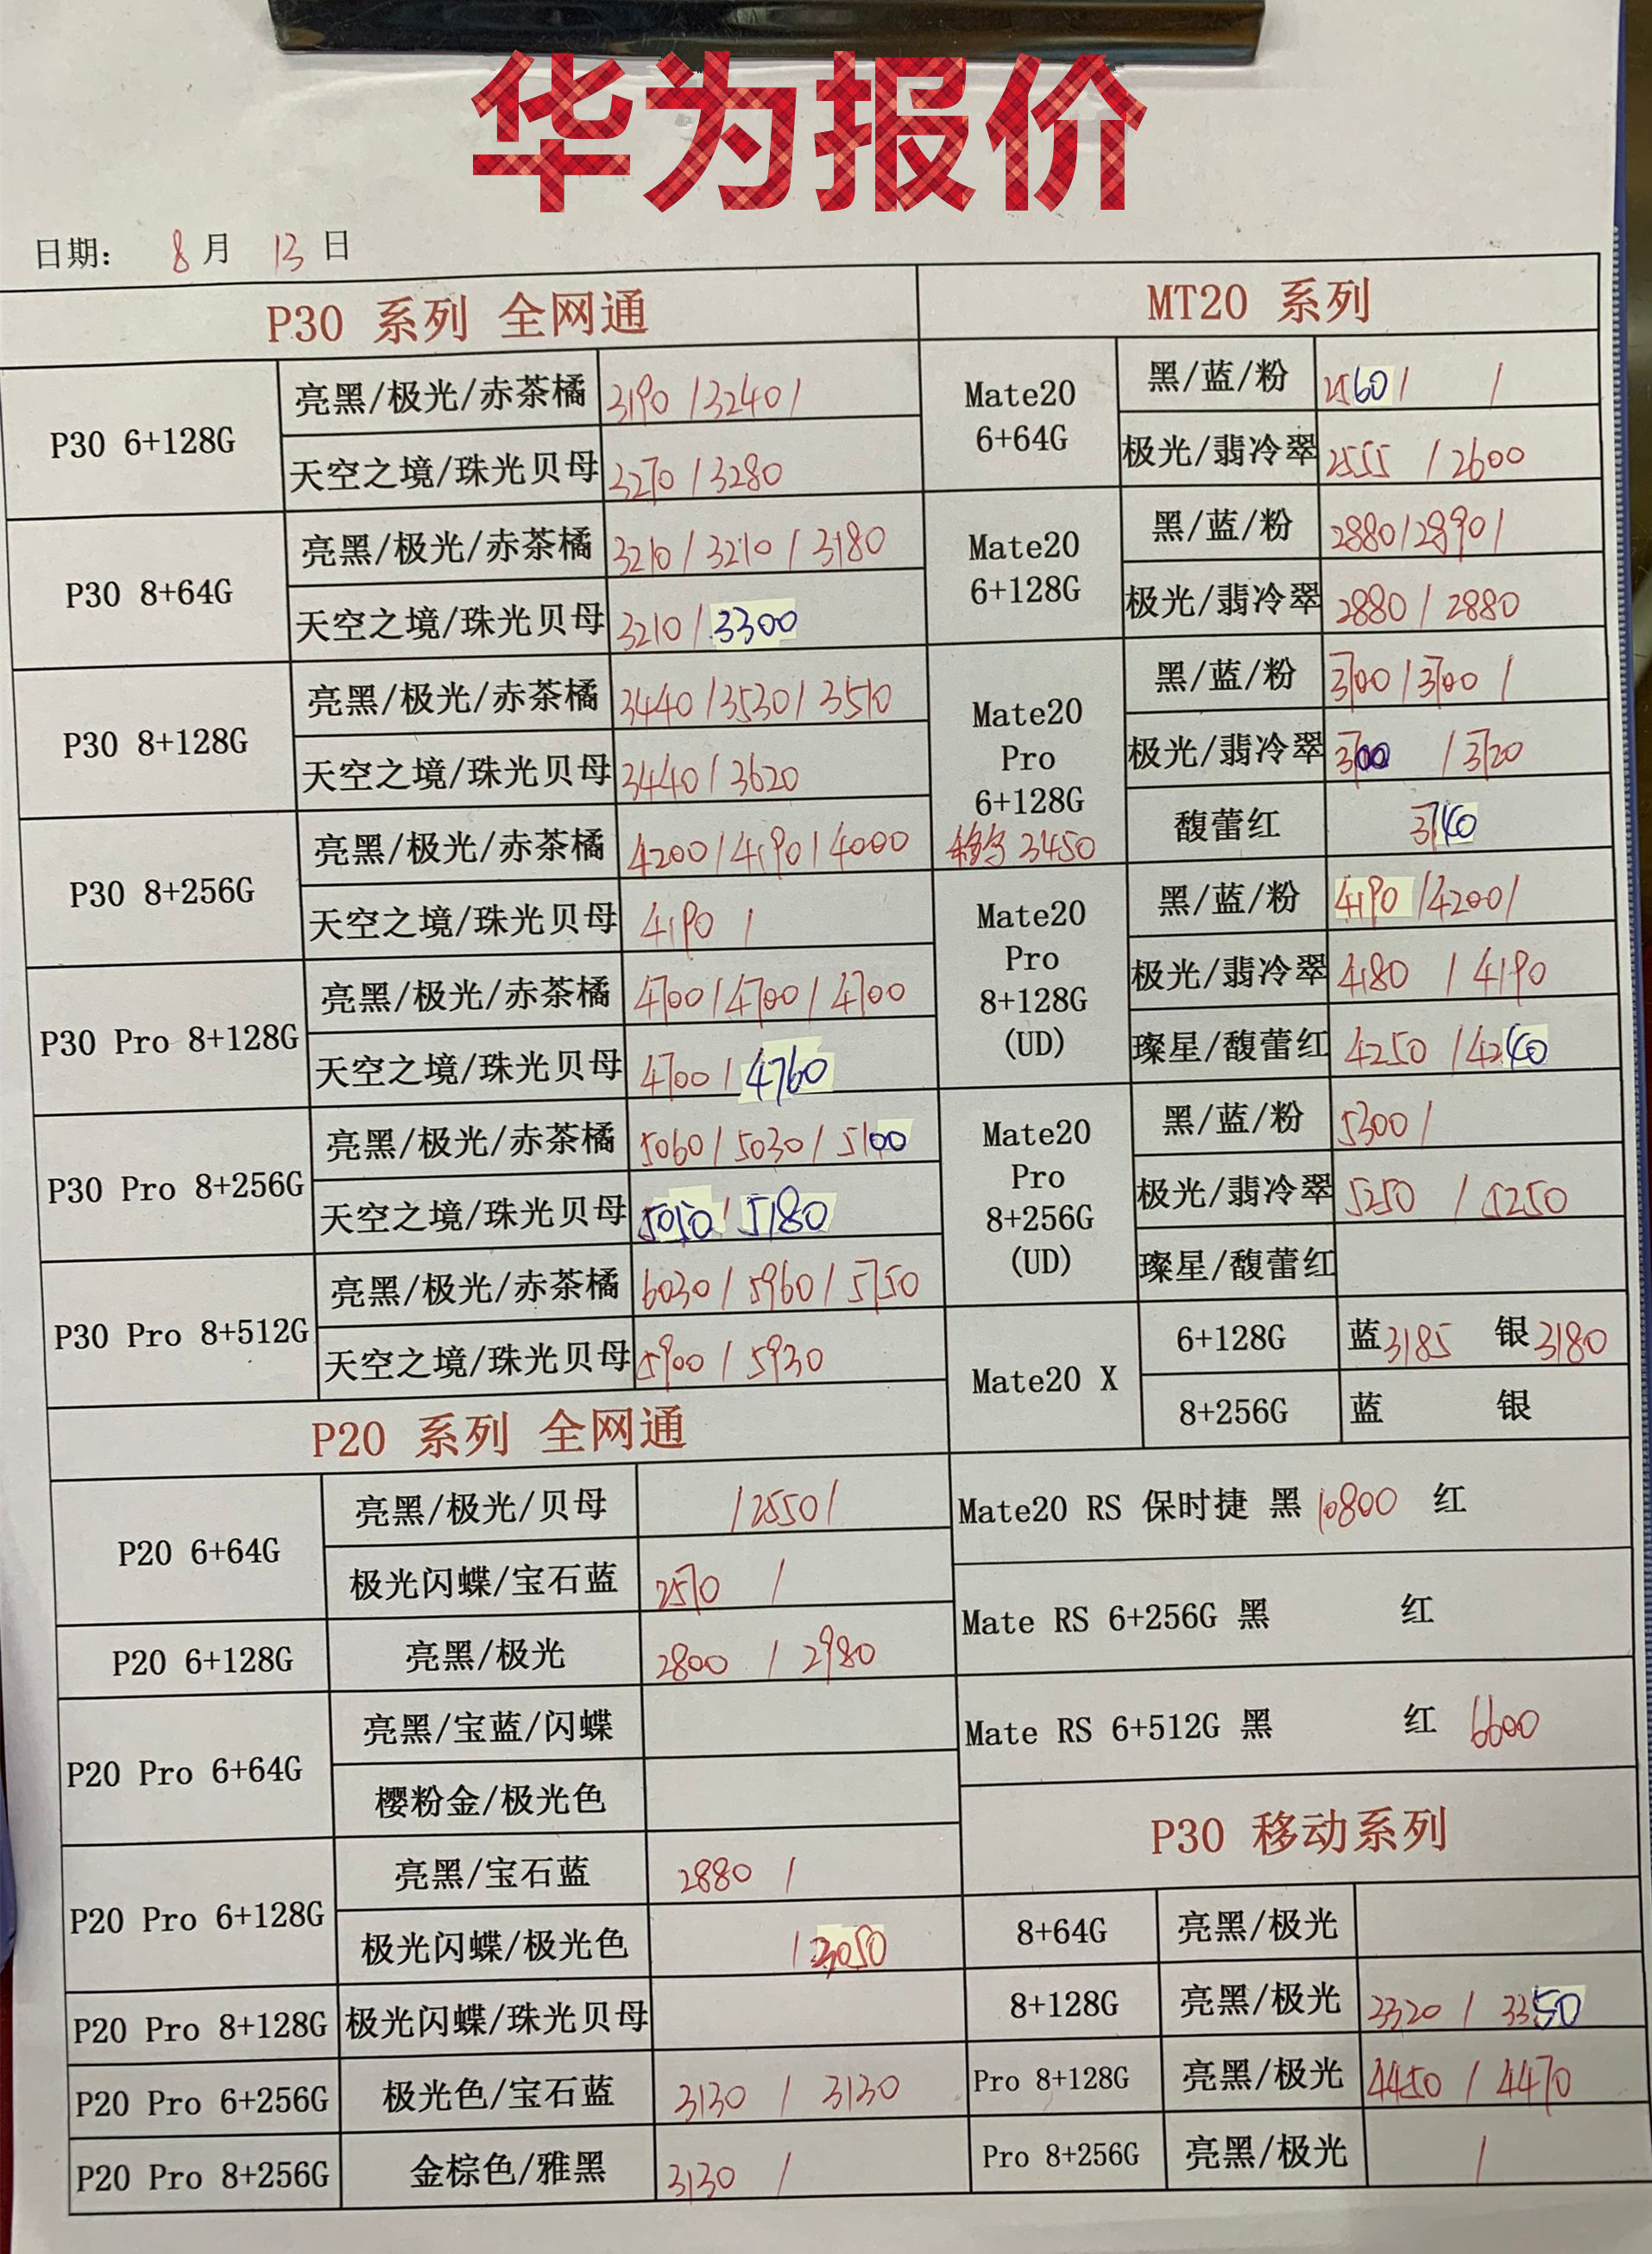 华为报价
日期： 8 月 13 日
P30 系列 全网通
P30 6+128G
亮黑/极光/赤茶橘 3190 / 3240 /
天空之境/珠光贝母 3270 / 3280
P30 8+64G
亮黑/极光/赤茶橘 3210 / 3210 / 3180
天空之境/珠光贝母 3210 / 3300
P30 8+128G
亮黑/极光/赤茶橘 3440 / 3530 / 3510
天空之境/珠光贝母 3440 / 3620
P30 8+256G
亮黑/极光/赤茶橘 4200 / 4190 / 4000
天空之境/珠光贝母 4190 /
P30 Pro 8+128G
亮黑/极光/赤茶橘 4700 / 4700 / 4700
天空之境/珠光贝母 4700 / 4760
P30 Pro 8+256G
亮黑/极光/赤茶橘 5060 / 5030 / 5100
天空之境/珠光贝母 5050 / 5180
P30 Pro 8+512G
亮黑/极光/赤茶橘 6030 / 5960 / 5750
天空之境/珠光贝母 5900 / 5930
P20 系列 全网通
P20 6+64G
亮黑/极光/贝母 / 2550 /
极光闪蝶/宝石蓝 2570 /
P20 6+128G
亮黑/极光 2800 / 2980
P20 Pro 6+64G
亮黑/宝蓝/闪蝶
樱粉金/极光色
P20 Pro 6+128G
亮黑/宝石蓝 2880 /
极光闪蝶/极光色 / 3050
P20 Pro 8+128G
极光闪蝶/珠光贝母
P20 Pro 6+256G
极光色/宝石蓝 3130 / 3130
P20 Pro 8+256G
金棕色/雅黑 3130 /
MT20 系列
Mate20
6+64G
黑/蓝/粉 2560 / /
极光/翡冷翠 2555 / 2600
Mate20
6+128G
黑/蓝/粉 2880 / 2890 /
极光/翡冷翠 2880 / 2880
Mate20
Pro
6+128G
3450
黑/蓝/粉 3700 / 3700 /
极光/翡冷翠 3700 / 3720
馥蕾红 3740
Mate20
Pro
8+128G
(UD)
黑/蓝/粉 4190 / 4200 /
极光/翡冷翠 4180 / 4190
璨星/馥蕾红 4250 / 4240
Mate20
Pro
8+256G
(UD)
黑/蓝/粉 5300 /
极光/翡冷翠 5250 / 5250
璨星/馥蕾红
Mate20 X
6+128G 蓝 3185 银 3180
8+256G 蓝 银
Mate20 RS 保时捷 黑 10800 红
Mate RS 6+256G 黑 红
Mate RS 6+512G 黑 红 6600
P30 移动系列
8+64G 亮黑/极光
8+128G 亮黑/极光 3320 / 3350
Pro 8+128G 亮黑/极光 4450 / 4470
Pro 8+256G 亮黑/极光 /